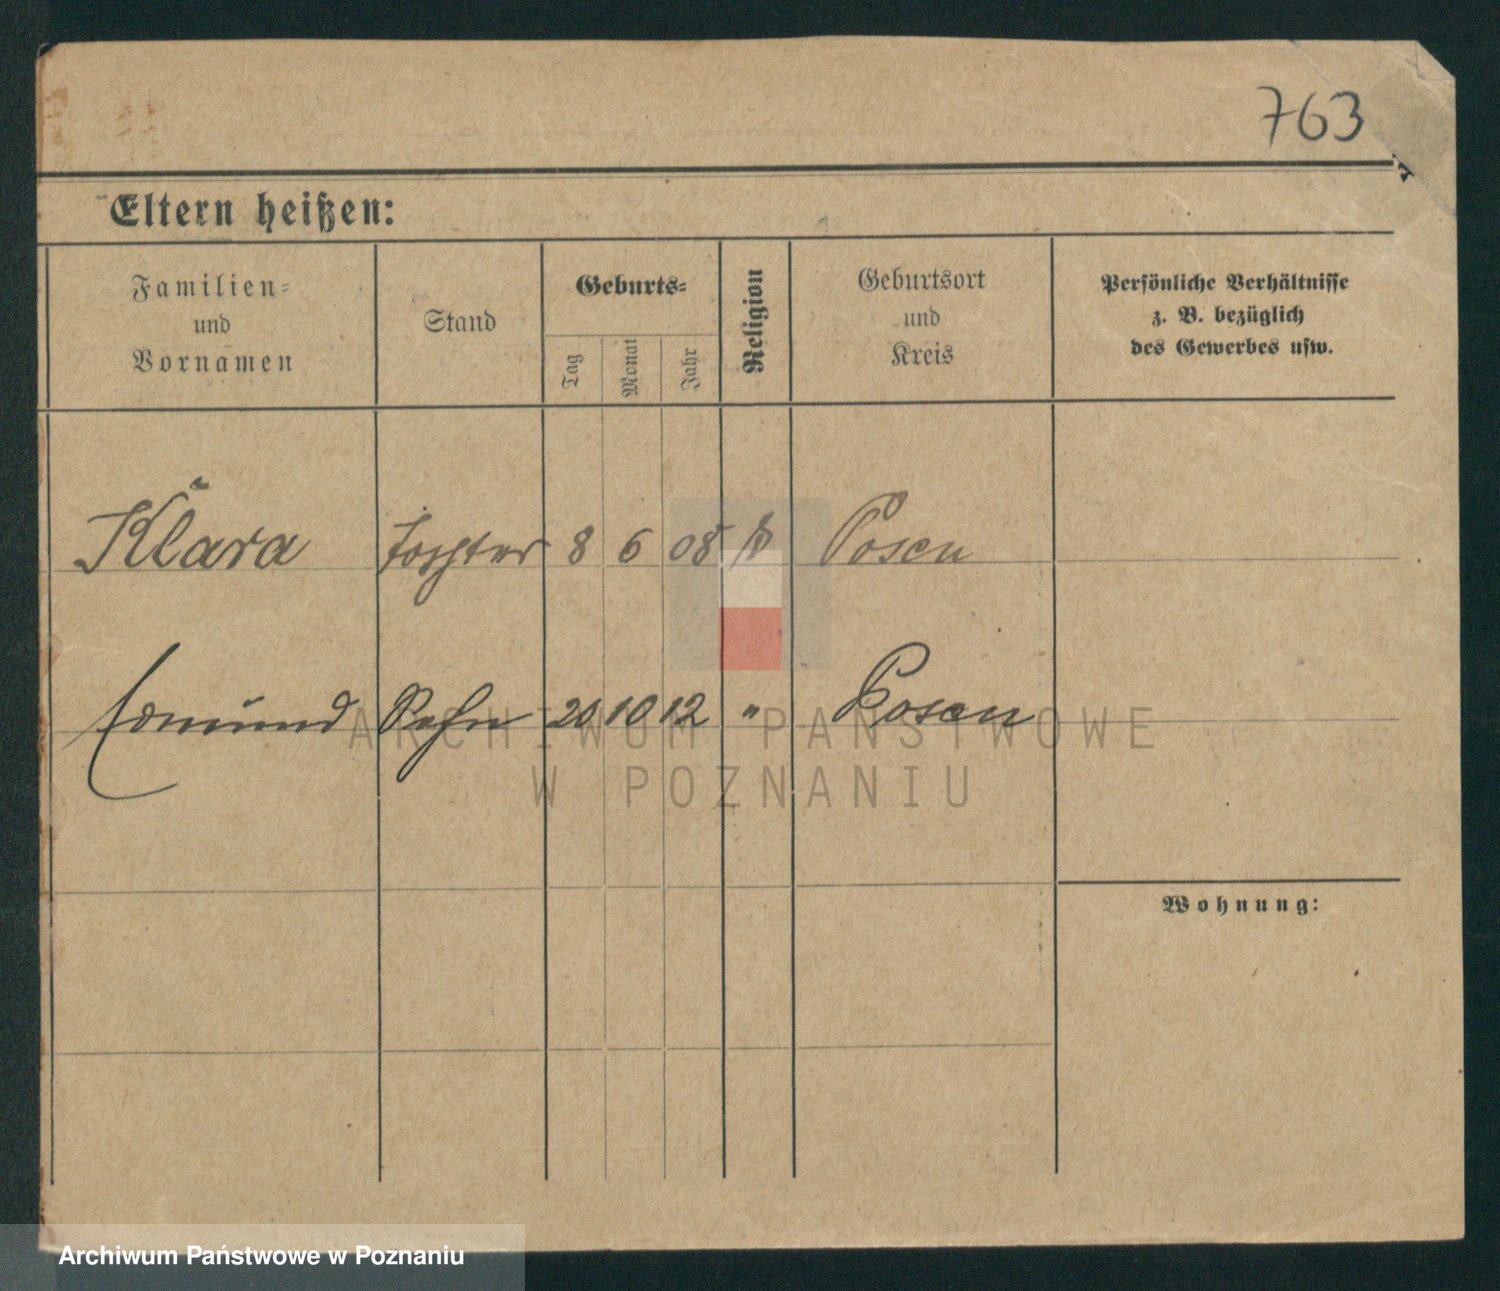 763
Eltern heißen:
Familien=
und
Vornamen
Stand
Geburts=
Tag
Monat
Jahr
Religion
Geburtsort
und
Kreis
Persönliche Verhältnisse
z. B. bezüglich
des Gewerbes usw.
Klara Tochter 8 6 08 Posen
Edmund Sohn 20 10 12 " Posen
Wohnung:
ARCHIWUM PAŃSTWOWE
W POZNANIU
Archiwum Państwowe w Poznaniu